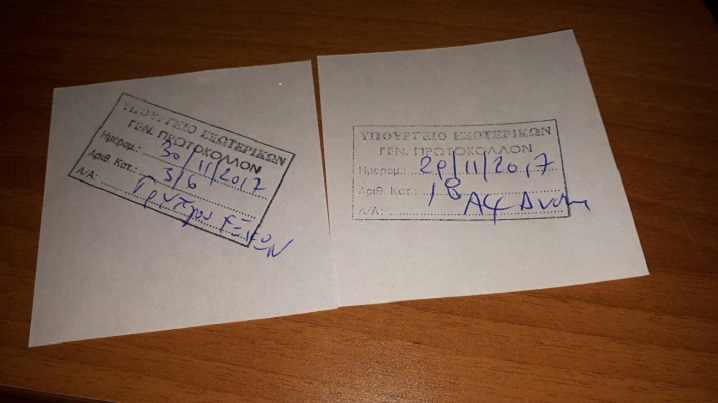 ΥΠΟΥΡΓΕΙΟ ΕΣΩΤΕΡΙΚΩΝ
ΓΕΝ. ΠΡΩΤΟΚΟΛΛΟΝ
Ημερομ.: 30/11/2017
Αριθ. Κατ.: 3/6
Α/Α:
ΥΠΟΥΡΓΕΙΟ ΕΣΩΤΕΡΙΚΩΝ
ΓΕΝ. ΠΡΩΤΟΚΟΛΛΟΝ
Ημερομ.: 29/11/2017
Αριθ. Κατ.: 18
Α/Α: